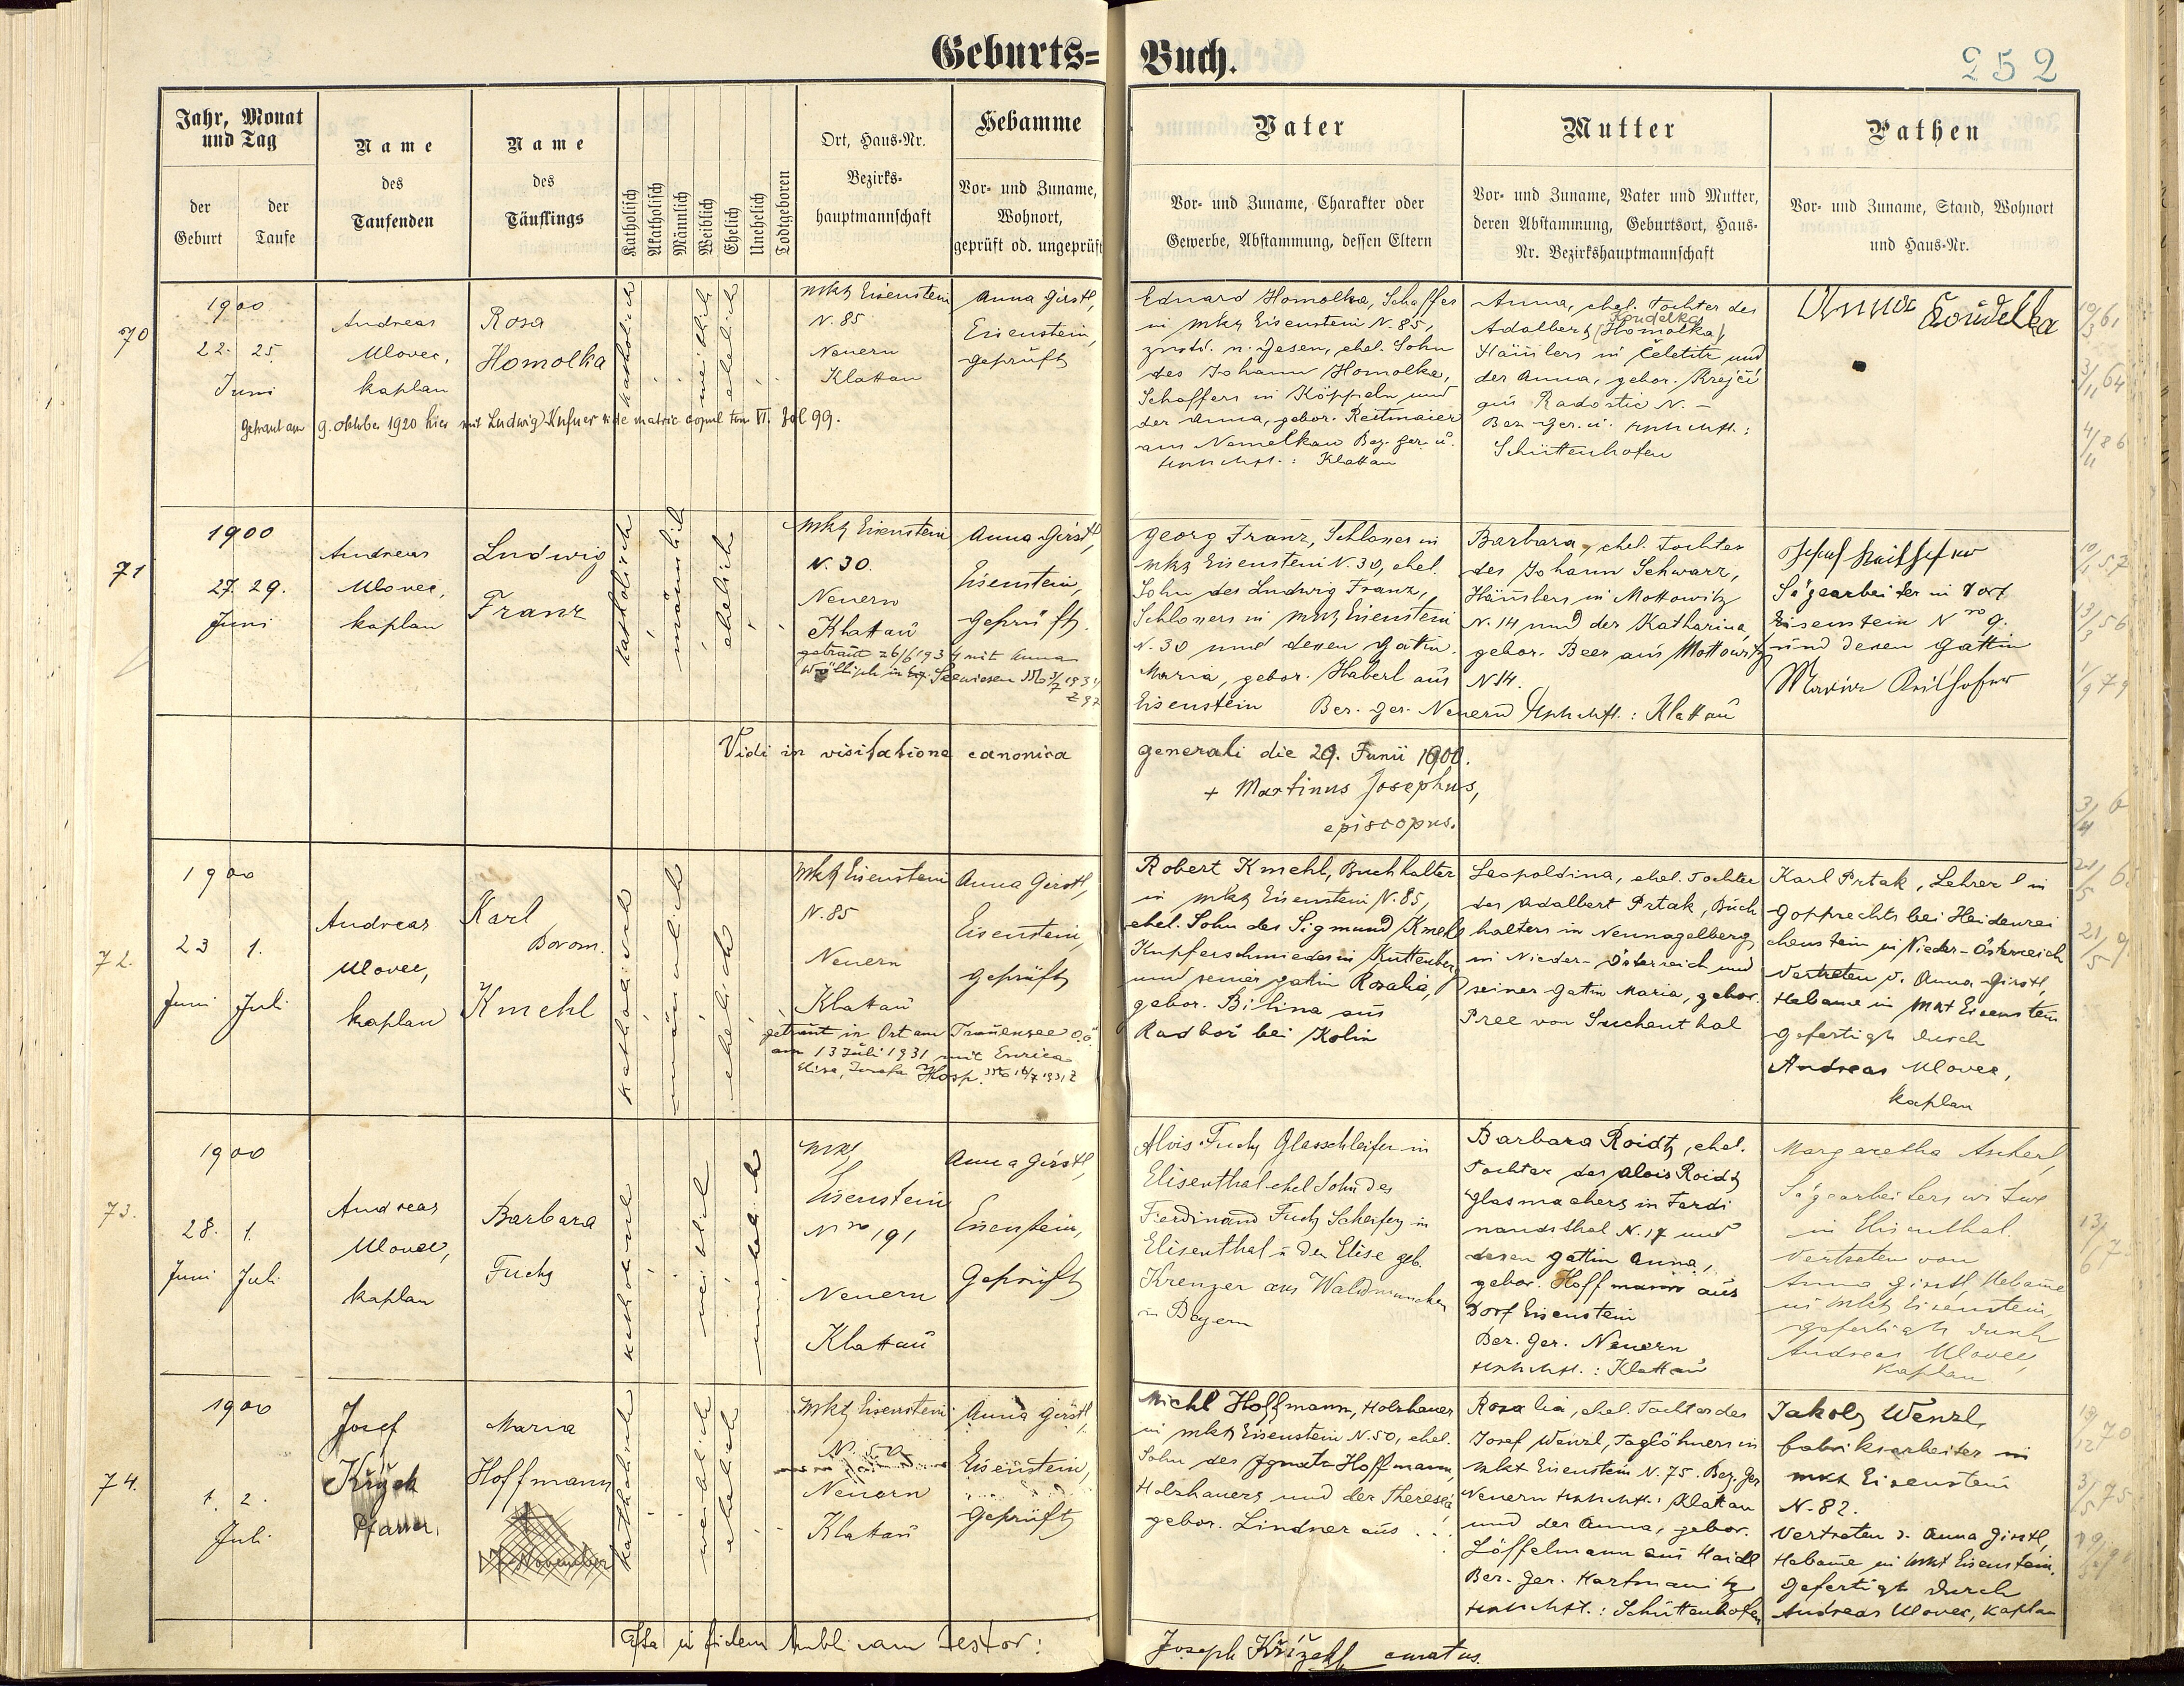 Geburts=Buch.
252
Jahr, Monat und Tag
der Geburt
der Taufe
Name des Taufenden
Name des Täuflings
Katholisch
Akatholisch
Männlich
Weiblich
Ehelich
Unehelich
Todtgeboren
Ort, Haus-Nr.
Bezirks-
hauptmannschaft
Hebamme
Vor- und Zuname,
Wohnort,
geprüft od. ungeprüft
Vater
Vor- und Zuname, Charakter oder
Gewerbe, Abstammung, dessen Eltern
Mutter
Vor- und Zuname, Vater und Mutter,
deren Abstammung, Geburtsort, Haus-
Nr. Bezirkshauptmannschaft
Pathen
Vor- und Zuname, Stand, Wohnort
und Haus-Nr.
70
1900
22. 25.
Juni
Andreas
Ulovec,
kaplan
Rosa
Homolka
katholisch
weiblich
ehelich
Mkt Eisenstein
N. 85
Neuern
Klattau
Anna Girstl,
Eisenstein,
geprüft
Getraut am 9. Oktober 1920 hier mit Ludwig Kufner vide matric copul tom VI. Fol 99.
Eduard Homolka, Schaffer
in Mkt Eisenstein N. 85,
ehel. Sohn
des Johann Homolka,
Schaffers in Köppeln und
der Anna, gebor. Reitmaier
aus Nemelkau Bez. Ger. u.
: Klattau
Anna, ehel. Tochter des
Koudelka
Adalbert (Homolka),
Häuslers in Čeletitz und
der Anna, gebor. Krejčí
aus Radostic N. –
Bez. Ger. u.
Schüttenhofen
Anna Koudelka
71
1900
27. 29.
Juni
Andreas
Ulovec,
kaplan
Ludwig
Franz
katholisch
männlich
ehelich
Mkt Eisenstein
N. 30.
Neuern
Klattau
getraut 26/6 1934 mit Anna
in Seewiesen
Anna Girstl,
Eisenstein,
geprüft.
Georg Franz, Schlosser in
Mkt Eisenstein N. 30, ehel.
Sohn des Ludwig Franz,
Schlossers in Mkt Eisenstein
N. 30 und dessen Gatin
Maria, gebor. Haberl aus
Eisenstein Bez. Ger. Neuern : Klattau
Barbara, ehel. Tochter
des Johann Schwarz,
Häuslers in Mottowitz
N. 14 und der Katharina,
gebor. Beer aus Mottowitz
N 14.
Josef
Sägearbeiter in Dorf
Eisenstein Nro 9.
und dessen Gattin
Maria
Vidi in visitatione canonica generali die 29. Junii 1900.
+ Martinus Josephus,
episcopus.
72.
1900
23 1.
Juni Juli
Andreas
Ulovec,
kaplan
Karl
Borom.
Kmehl
katholisch
männlich
ehelich
Mkt Eisenstein
N. 85
Neuern
Klattau
Anna Girstl,
Eisenstein,
geprüft
getraut in Ort am Traunsee O.Ö.
am 13 Juli 1931 mit Enrica
Elisa, Josefa Hosp.
Robert Kmehl, Buchhalter
in Mkt Eisenstein N. 85,
ehel. Sohn des Sigmund Kmehl
Kupferschmiedes in Kuttenberg
und seiner Gatin Rosalia,
gebor. Bilina aus
Radboř bei Kolin
Leopoldina, ehel. Tochter
des Adalbert Prtak, Buch
halters in Neunagelberg
in Nieder-Österreich und
seiner Gattin Maria, gebor.
Pree von Suchenthal
Karl Prtak, Lehrer in
Gopprechts bei Heidenrei
chenstein in Nieder-Österreich
Vertreten v. Anna Girstl,
Hebame in Mrkt Eisenstein
Gefertigt durch
Andreas Ulovec,
kaplan
73.
1900
28. 1.
Juni Juli
Andreas
Ulovec,
kaplan
Barbara
Fuchs
katholisch
weiblich
unehelich
Mkt
Eisenstein
Nro 191
Neuern
Klattau
Anna Girstl,
Eisenstein,
Geprüft
Alois Fuchs Glasschleifer in
Elisenthal ehel Sohn des
Ferdinand Fuchs Schleifer in
Elisenthal u der Elise geb.
Krenzer aus Waldmünchen
in Bayern
Barbara Roidtz, ehel.
Tochter des Alois Roidtz
Glasmachers in Ferdi
nandsthal N. 17 und
dessen Gattin Anna,
gebor. Hoffmann aus
Dorf Eisenstein
Bez. Ger. Neuern
: Klattau
Margaretha Ascherl,
Sägearbeiters witwe
in Elisenthal.
Vertreten von
Anna Girstl, Hebame
in Mkt Eisenstein
gefertigt durch
Andreas Ulovec,
kaplan
74.
1900
1. 2.
Juli
Josef
Křížek
Pfarrer.
Maria
Hoffmann
katholisch
weiblich
ehelich
Mkt Eisenstein
N. 50
Neuern
Klattau
Anna Girstl,
Eisenstein,
Geprüft
Michl Hoffmann, Holzhauer
in Mkt Eisenstein N. 50, ehel.
Sohn des Ignatz Hoffmann,
Holzhauers und der Theresia
gebor. Lindner aus . . .
Rosalia, ehel. Tochter des
Josef Wenzl, Taglöhners in
Mkt Eisenstein N. 75. Bez. Ger
Neuern : Klattau
und der Anna, gebor.
Löffelmann aus Haidl
Bez. Ger. Hartmanitz
: Schüttenhofen
Jakob Wenzl,
fabriksarbeiter in
Mkt Eisenstein
N. 82.
Vertreten d. Anna Girstl,
Hebame in Mkt Eisenstein.
Gefertigt durch
Andreas Ulovec, kaplan
in fidem publicam testor:
Joseph Křížek curatus.